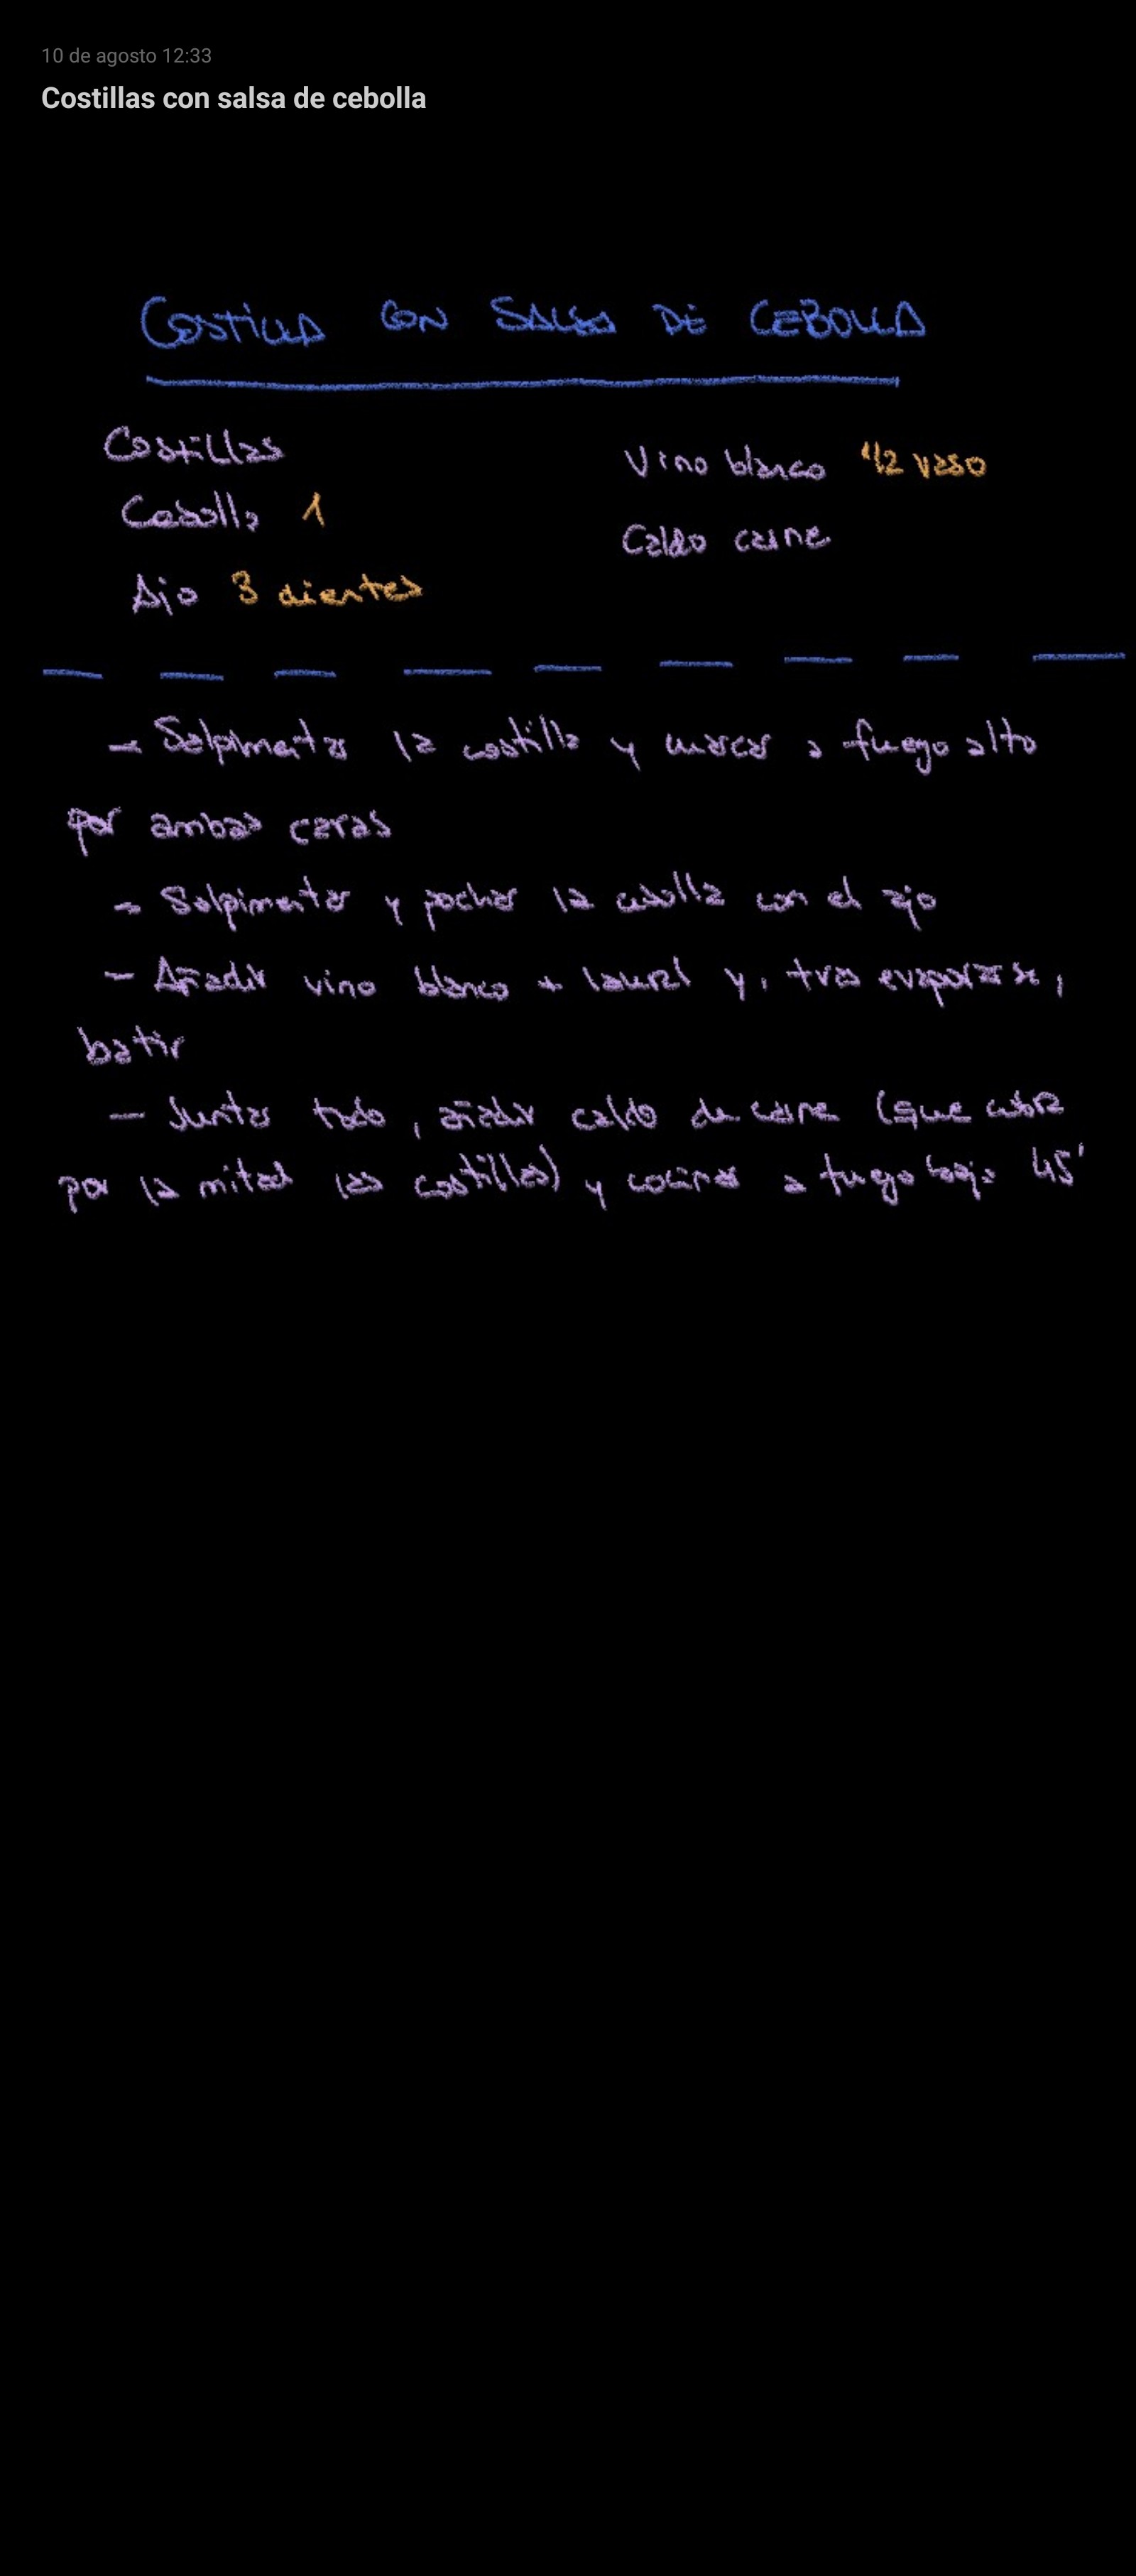 10 de agosto 12:33
Costillas con salsa de cebolla
COSTILLA CON SALSA DE CEBOLLA
Costillas
Vino blanco 1/2 vaso
Cebolla 1
Caldo carne
Ajo 3 dientes
- Salpimentar la costilla y marcar a fuego alto
por ambas caras
- Salpimentar y pochar la cebolla con el ajo
- Añadir vino blanco + laurel y, tras evaporarse,
batir
- Juntar todo, añadir caldo de carne (que cubra
por la mitad las costillas) y cocinar a fuego bajo 45'